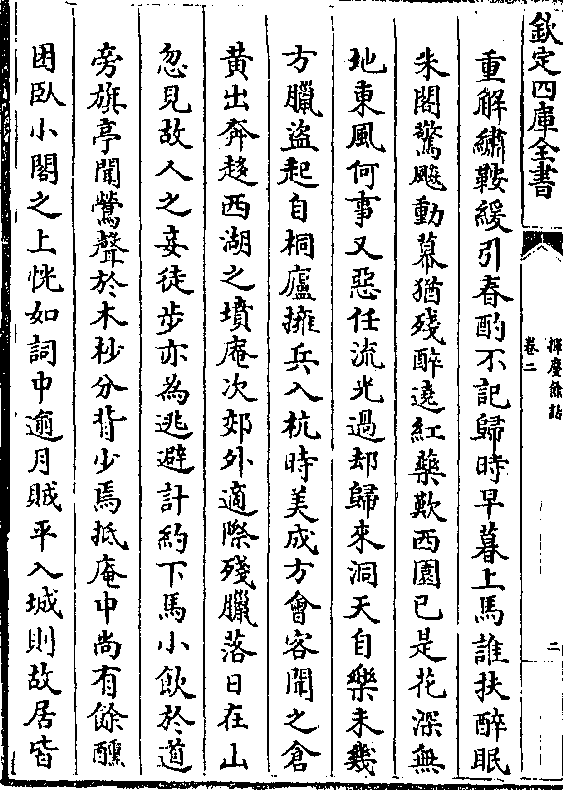 欽定四庫全書
揮麈餘話
卷二
二
重解繡鞍緩引春酌不記歸時早暮上馬誰扶醉眠
朱閣驚飇動幕猶殘醉遶紅藥歎西園已是花深無
地東風何事又惡任流光過却歸來洞天自樂未幾
方臘盗起自桐廬擁兵入杭時美成方會客聞之倉
黄出奔趍西湖之墳庵次郊外適際殘臘落日在山
忽見故人之妾徒步亦為逃避計約下馬小飲於道
旁旗亭聞鶯聲於木杪分背少焉抵庵中尚有餘醺
困臥小閣之上恍如詞中逾月賊平入城則故居皆